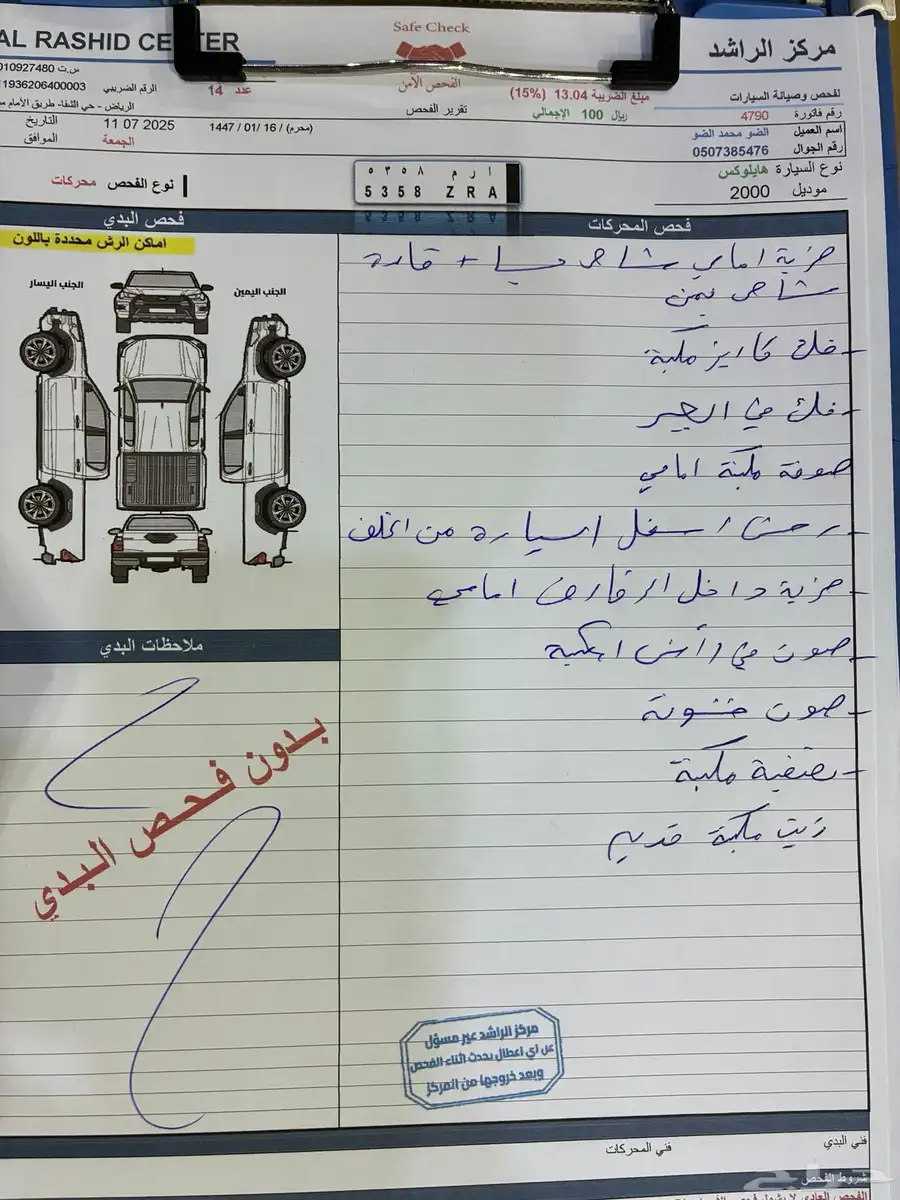 AL RASHID CENTER
Safe Check
مركز الراشد
الفحص الآمن
لفحص وصيانة السيارات
س.ت 010927480
الرقم الضريبي 11936206400003
عدد 14
تقرير الفحص
مبلغ الضريبة 13.04 (15%)
ريال 100 الإجمالي
رقم فاتورة 4790
اسم العميل الضو محمد الضو
رقم الجوال 0507385476
الرياض - حي الشفا- طريق الأمام
التاريخ 11 07 2025
1447 / 01 / 16 / (محرم)
الموافق الجمعة
نوع السيارة هايلوكس
موديل 2000
نوع الفحص محركات
٥ ٣ ٥ ٨ ا ر م
5 3 5 8 Z R A
فحص المحركات
فحص البدي
اماكن الرش محددة باللون
الجنب اليسار
الجنب اليمين
ضربة امامي شاص + 
شاص يمين
- فك كاريز مكينة
- فك في الجير
صوفة مكينة امامي
- اسفل السيارة من الخلف
- ضربة داخل الرفارف امامي
- صوت في رأس المكينة
- صوت خشونة
- تصفية مكينة
زيت مكينة قديم
ملاحظات البدي
بدون فحص البدي
مركز الراشد غير مسؤل
عن أي اعطال يحدث اثناء الفحص
وبعد خروجها من المركز
فني البدي
فني المحركات
شروط الفحص
حراج